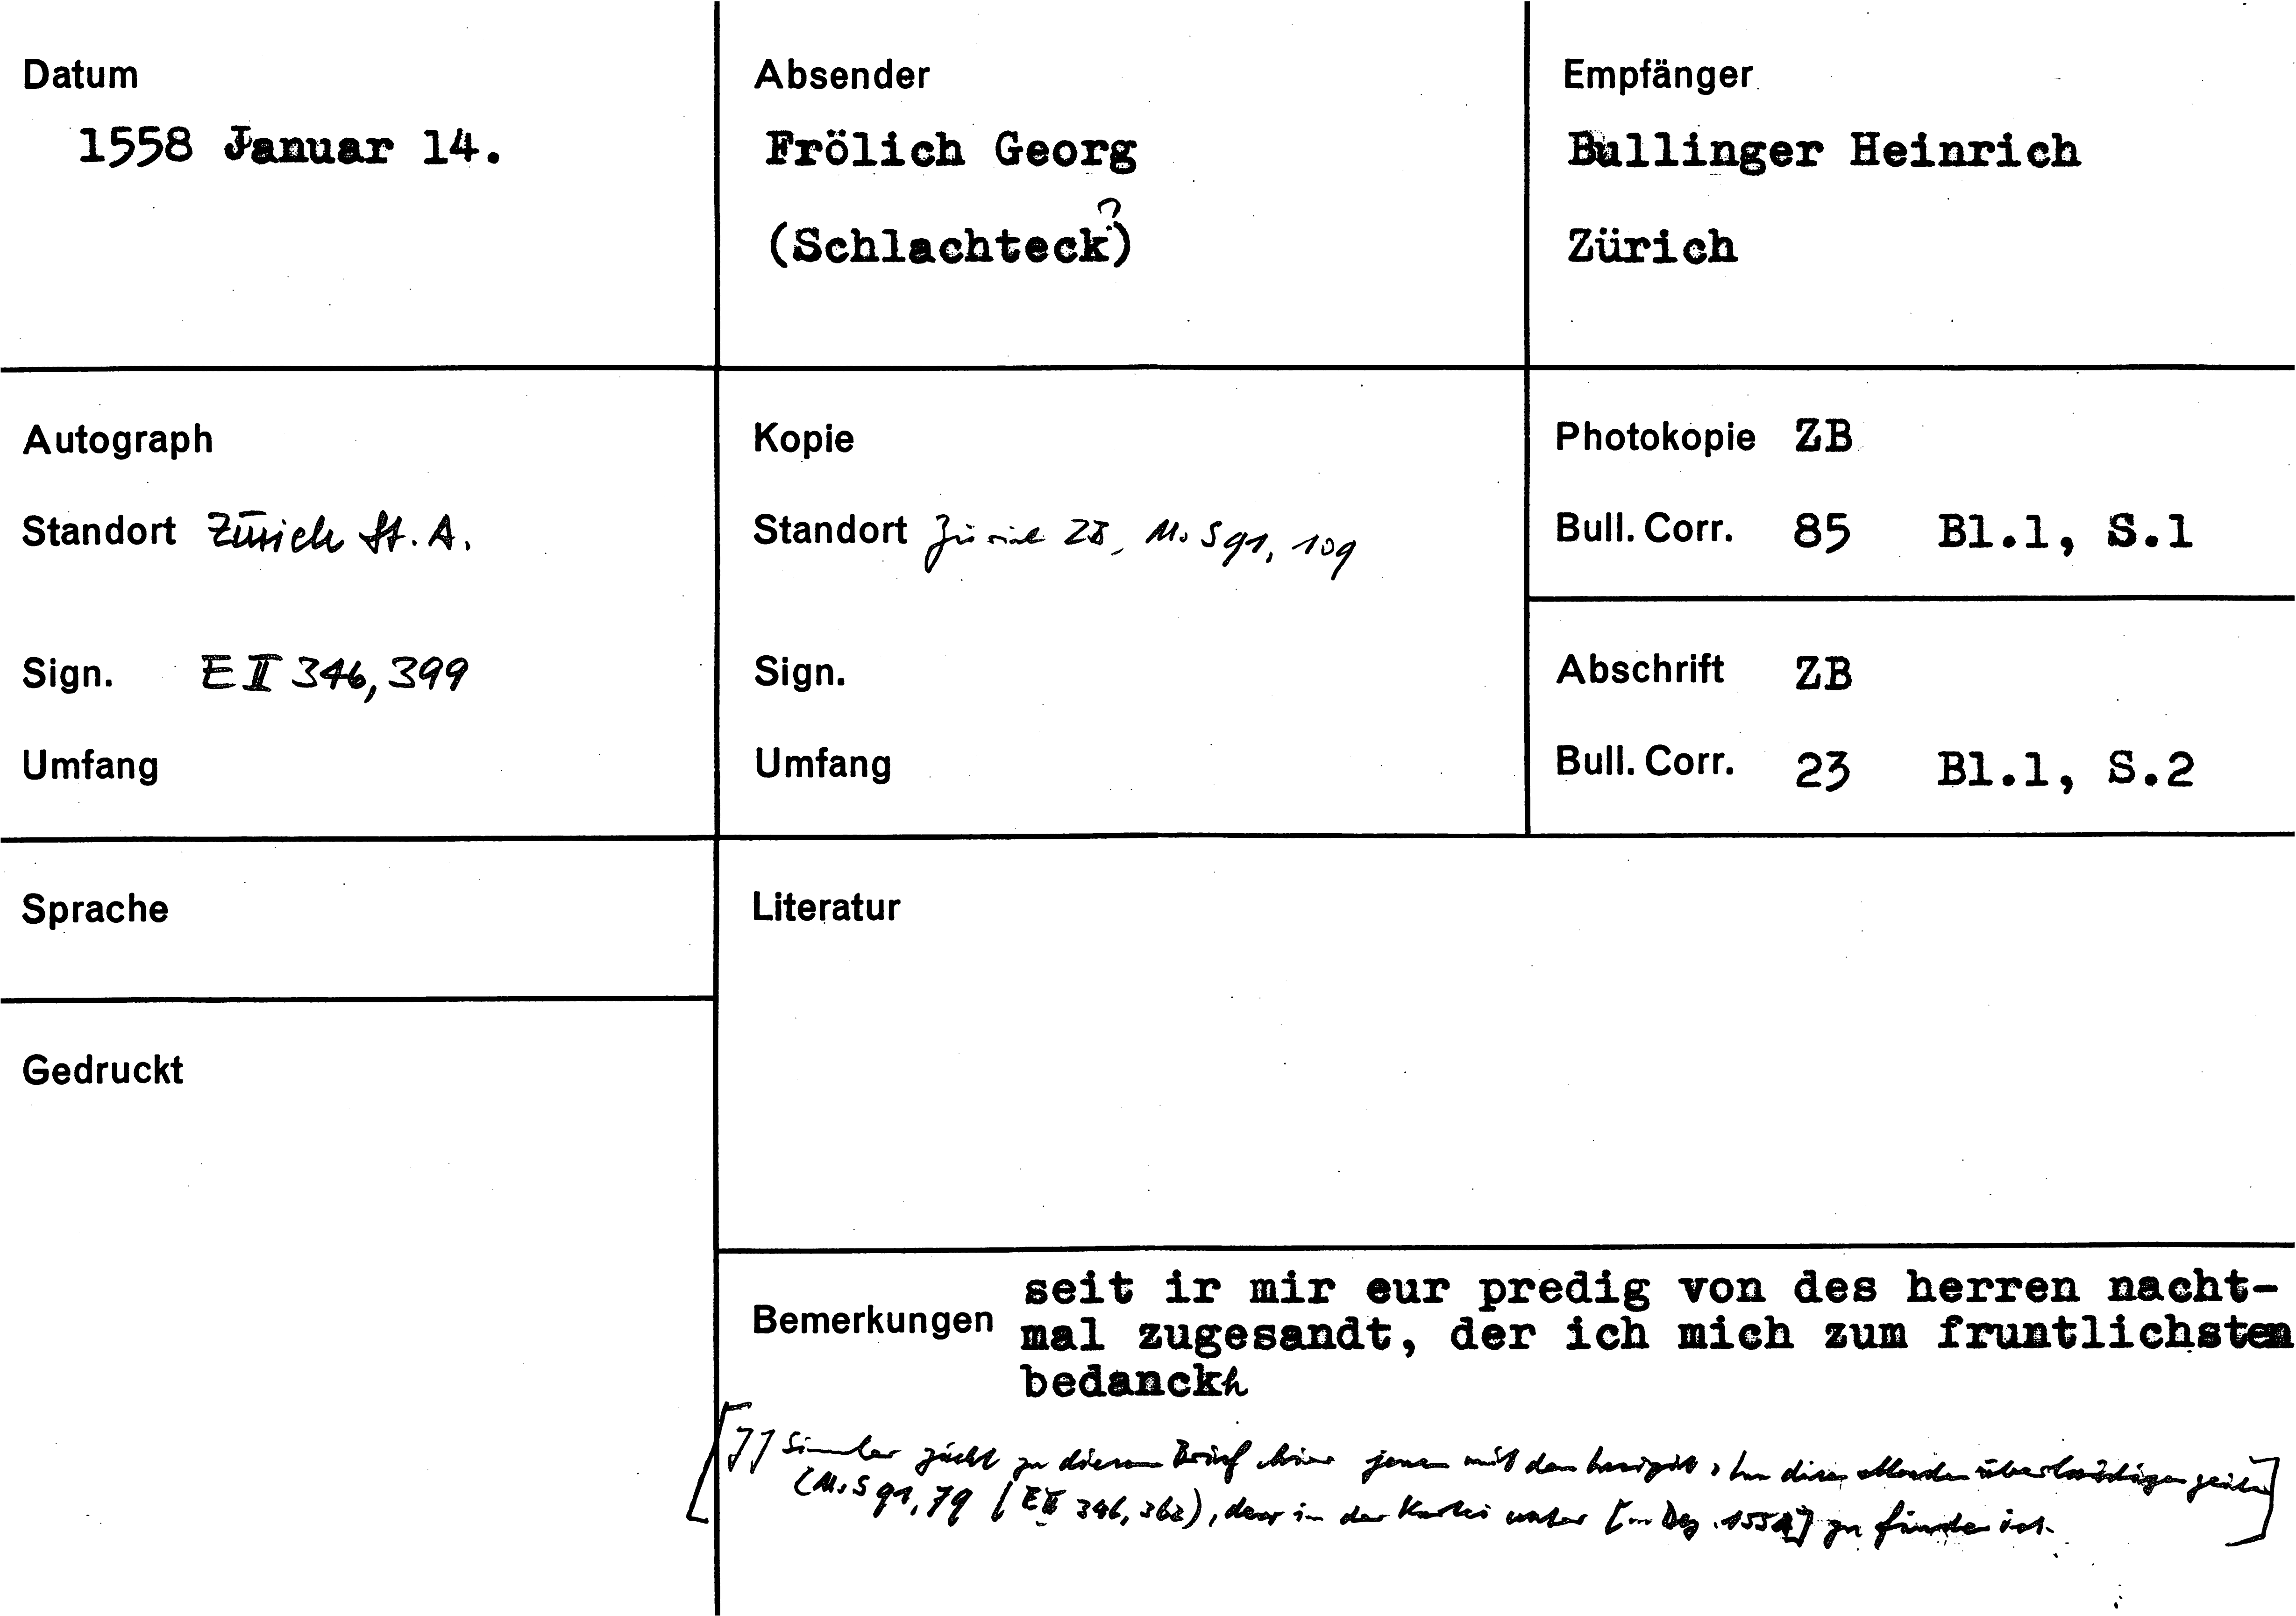 Datum
1558 Januar 14.
Absender
Frölich Georg
(Schlachteck?)
Empfänger
Bullinger Heinrich
Zürich
Autograph
Standort Zürich St. A.
Sign. E II 346, 399
Umfang
Kopie
Standort Zürich ZB, Ms S 91, 109
Sign.
Umfang
Photokopie ZB
Bull. Corr. 85 Bl.1, S.1
Abschrift ZB
Bull. Corr. 23 Bl.1, S.2
Sprache
Gedruckt
Literatur
Bemerkungen
seit ir mir eur predig von des herren nacht-
mal zugesandt, der ich mich zum fruntlichsten
bedanckh
[JJ Simler zu diesem Brief jenen mit dem
(Ms S 91, 79 / E II 346, 362), der in der Kartei unter zu finden ist.]